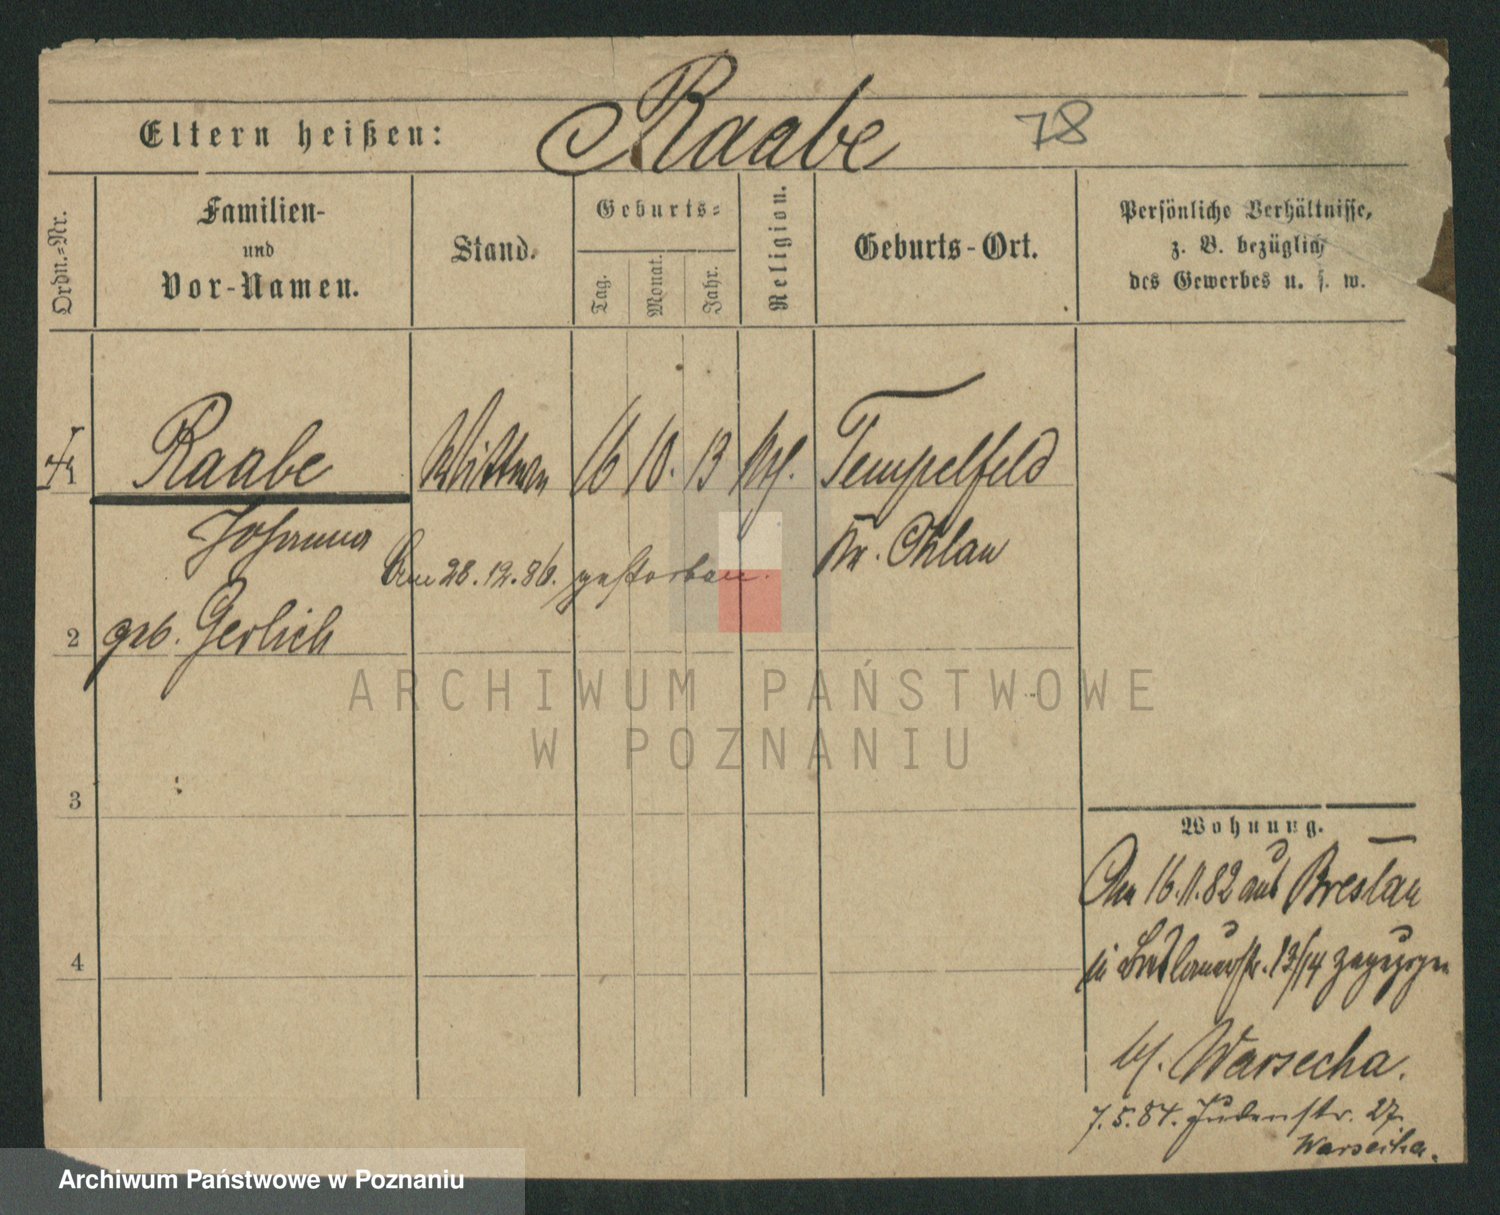 Raabe 78
Eltern heißen:
Ordn.-Nr.
Familien-
und
Vor-Namen.
Stand.
Geburts-
Tag.
Monat.
Jahr.
Religion.
Geburts-Ort.
Persönliche Verhältnisse,
z. B. bezüglich
des Gewerbes u. s. w.
Raabe Wittwe 16 10. 13 Tempelfeld
Johanna
Kr. Ohlau
Am 28.12.86. gestorben.
2 geb. Gerlich
ARCHIWUM PAŃSTWOWE
W POZNANIU
3
4
Wohnung.
Am 16.11.82 aus Breslau
in 13/14 zugezogen
bei Warsecha.
7.5.84. Judenstr. 27.
Warsecha.
Archiwum Państwowe w Poznaniu